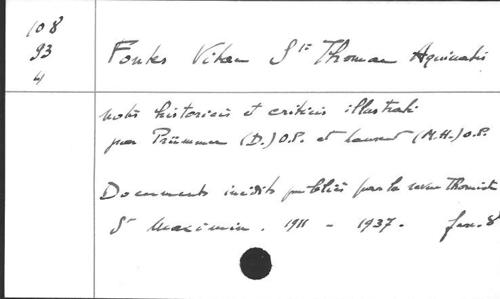 108
93
4
Fontes Vitae S^ti Thomae Aquinatis
notis historicis et criticis illustrati
par Prümmer (D.) O.P. et Laurent (M.H.) O.P.
Documents inédits publiés par la revue Thomiste
St Maximin. 1911 - 1937. fasc. 8°